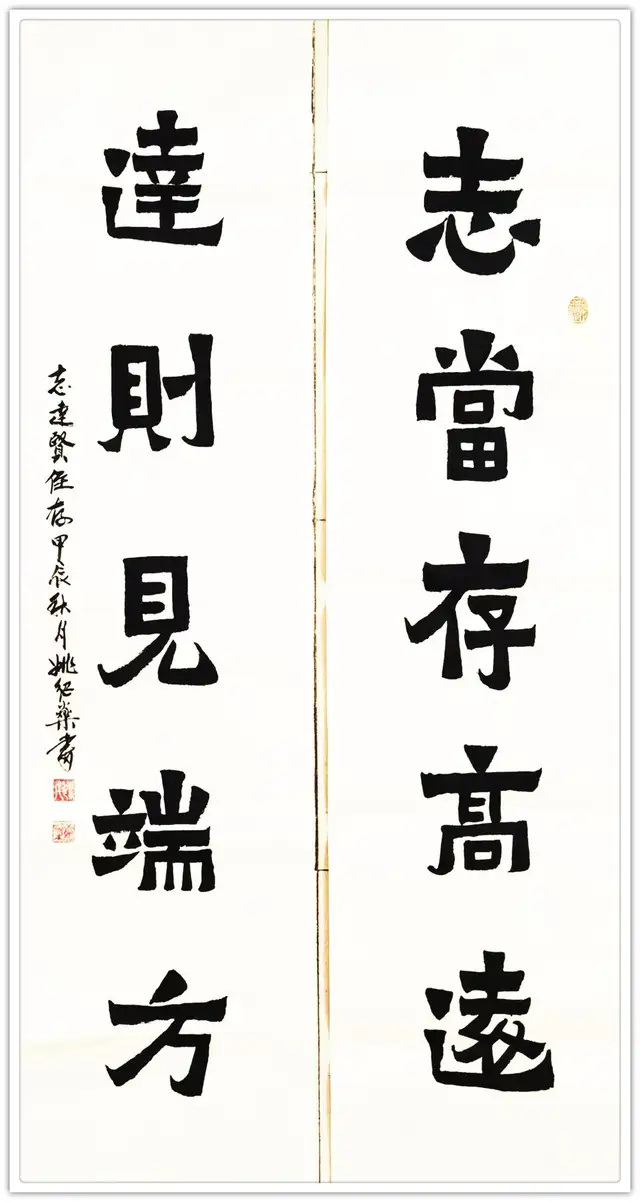 志當存高遠
達則見端方
志達賢侄存甲辰秋月姚紀燊書